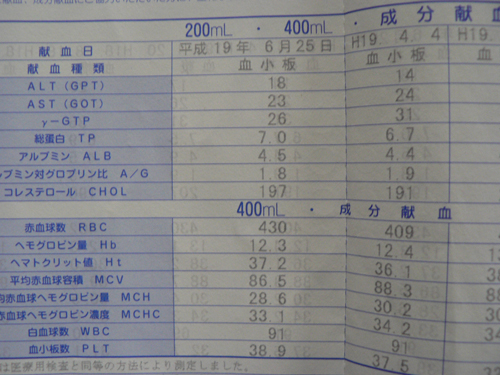 200mL ・ 400mL ・ 成分献血
献血日 平成19年 6月25日 H19. 4. 4 H19.
献血種類 血小板 血小板
ALT(GPT) 18 14
AST(GOT) 23 24
γ-GTP 26 31
総蛋白 TP 7.0 6.7
アルブミン ALB 4.5 4.4
ブミン対グロブリン比 A/G 1.8 1.9
コレステロール CHOL 197 191
400mL ・ 成分献血
赤血球数 RBC 430 409
ヘモグロビン量 Hb 12.3 12.4
ヘマトクリット値 Ht 37.2 36.1
平均赤血球容積 MCV 86.5 88.3
均赤血球ヘモグロビン量 MCH 28.6 30.2
赤血球ヘモグロビン濃度 MCHC 33.1 34.2
白血球数 WBC 91 91
血小板数 PLT 38.9 37.5
は医療用検査と同等の方法により測定しました。